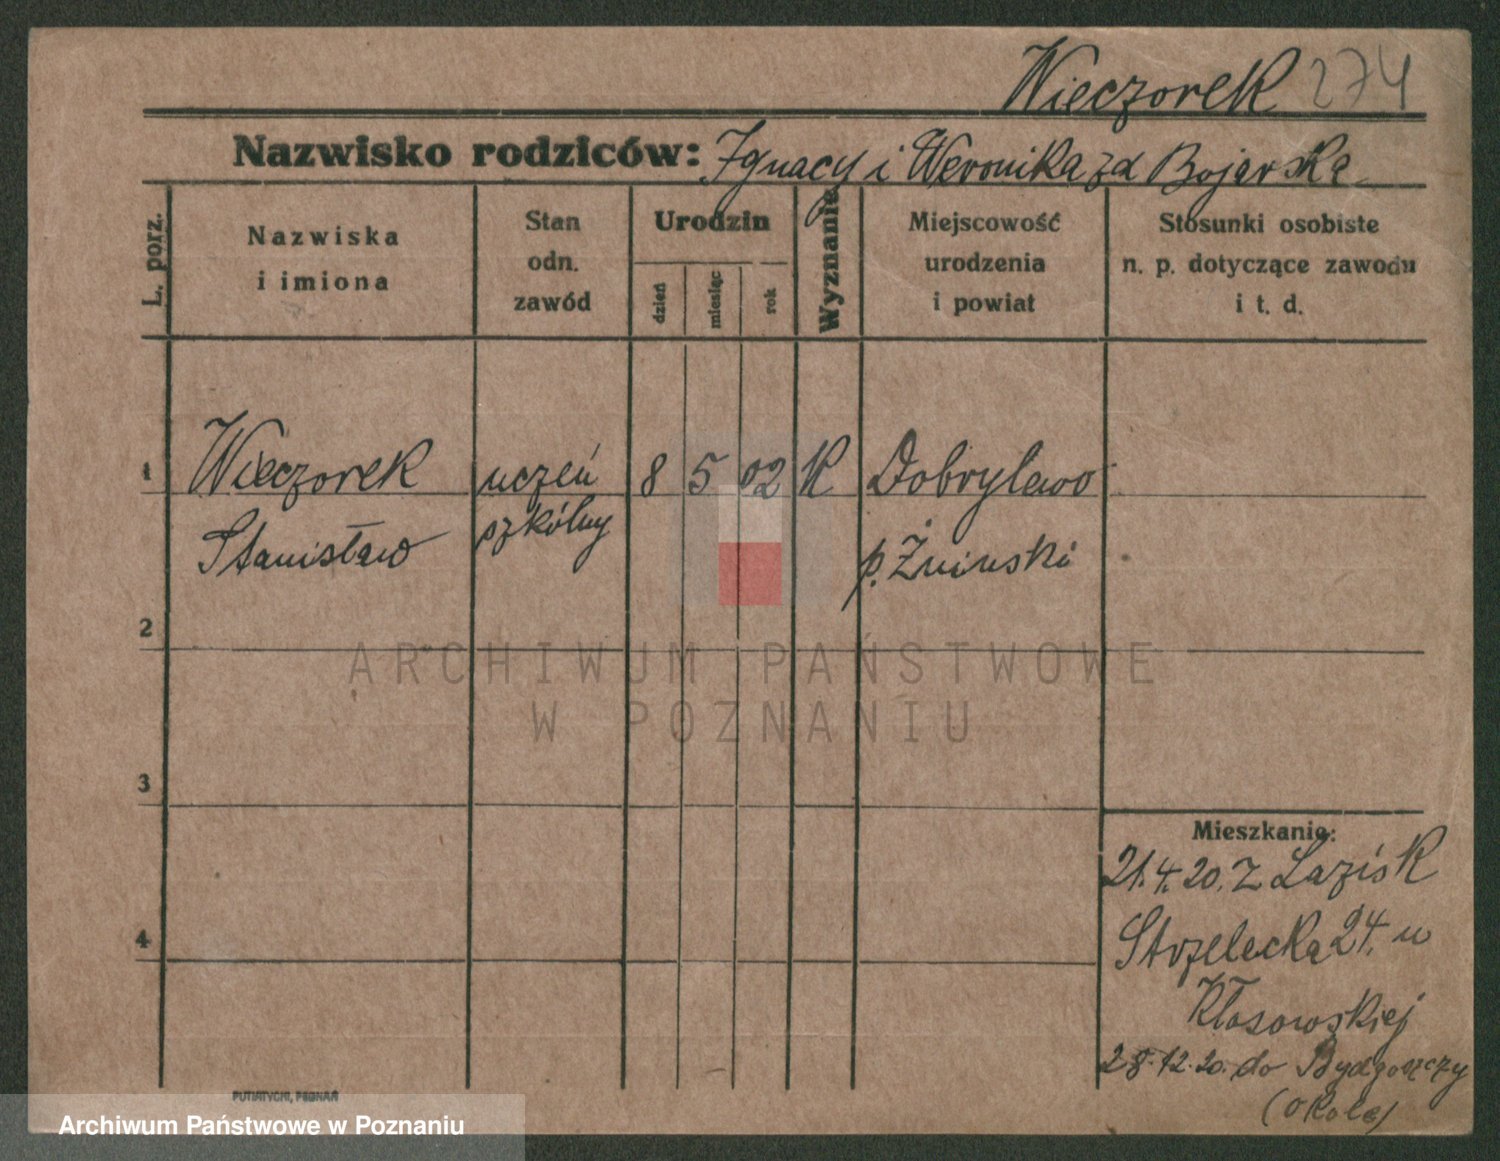 Wieczorek 274
Nazwisko rodziców: Ignacy i Weronika zd Bojarska
L. porz.
Nazwiska
i imiona
Stan
odn.
zawód
Urodzin
dzień
miesiąc
rok
Wyznanie
Miejscowość
urodzenia
i powiat
Stosunki osobiste
n. p. dotyczące zawodu
i t. d.
1 Wieczorek uczeń 8 5 02 K Dobrylewo
Stanisław szkólny p. Żniński
2
3
4
Mieszkanie:
21.4.20. z Łazisk
Strzelecka 24. u
Kłosowskiej
28.12.20. do Bydgoszczy
(Okole)
PUTIATYCKI, POZNAŃ
ARCHIWUM PAŃSTWOWE
W POZNANIU
Archiwum Państwowe w Poznaniu